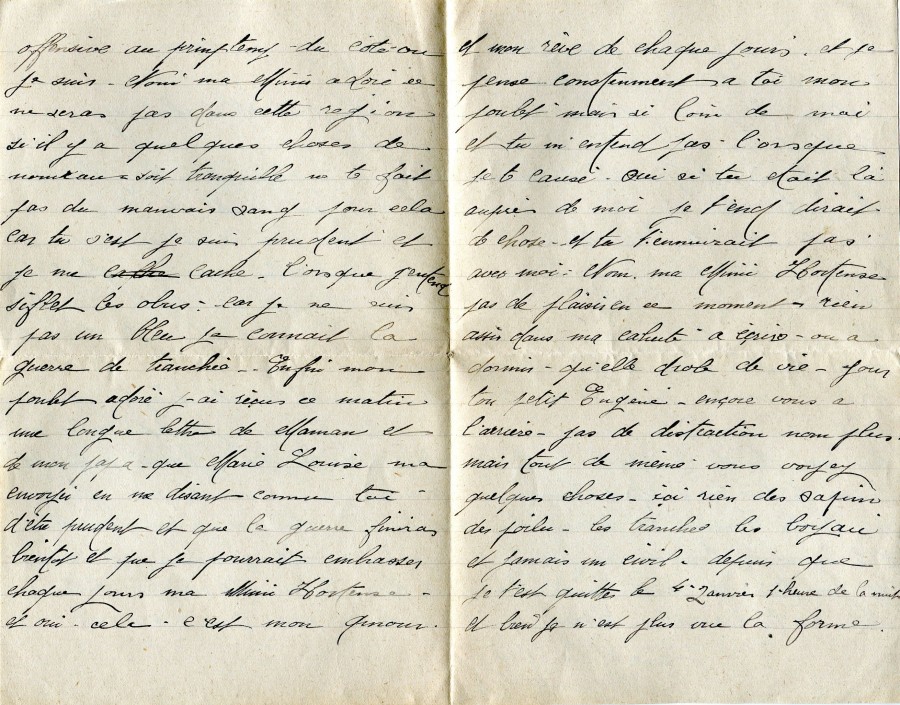 offensive au printemp - du coté ou
je suis - Non ma Mimi adoré ce
ne seras pas dans cette region
si il y a quelques choses de
nouveau = soit tranquille ne te fait
pas du mauvais sang pour cela
car tu s'est je suis prudent et
je me cache - l'orsque j'entend
siffler les obus - car je ne suis
pas un bleu je connait la
guerre de tranchée -- Enfin mon
poulet adoré j-ai reçus ce matin
une longue lettre de Maman et
de mon papa - que Marie Louise ma
envoyée en me disant comme toi -
d'etre prudent et que la guerre finiras
bientot et que je pourrait embrasser
chaque jours ma Mimi Hortense -
et oui - cela - c'est mon amour.
et mon rêve de chaque jours. et je
pense constenment a toi mon
poulet mais si loin de moi
et tu m'entend pas l'orsque
je te cause - oui si tu etait là
auprès de moi je t'end dirait
de chose - et tu t'ennuirait pas
avec moi = Non. ma Mimi Hortense
pas de plaisir en ce moment - rien
assis dans ma cahute a ecrire - ou a
dormir - qu'elle drole de vie - pour
ton petit Eugène - encore vous a
l'arrière - pas de distraction non plus.
mais tout de même vous voyez
quelques choses - ici rien des sapins
des poilu - les tranchés les boyau
et jamais un civil - depuis que
je t'est quitter le 4 Janvier 1 heure de la nuit
et bien je n'est plus vue la forme.